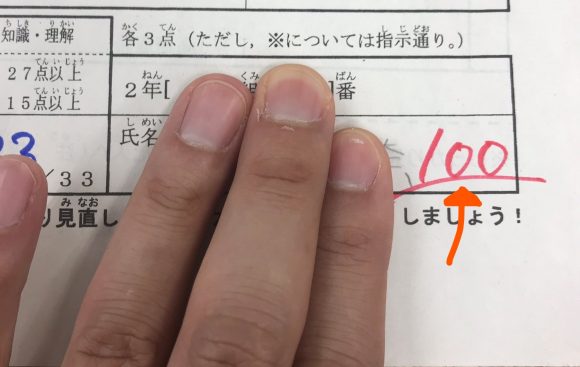 知識・理解
各3点（ただし，※については指示通り。）
27点以上
15点以上
2年[
]番
氏名
100
/33
り見直し
しましょう！